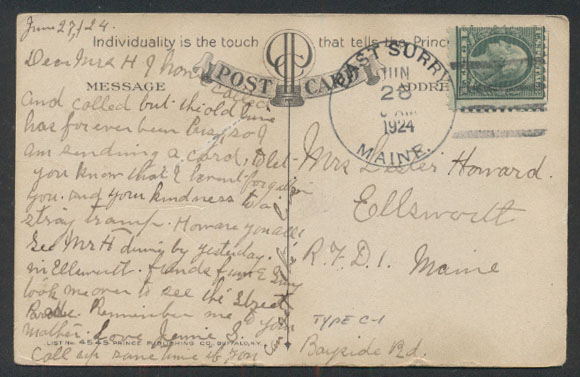 June 27/24.
Individuality is the touch that tells the Princ
Dear Mrs H I have called
POST CARD
MESSAGE
ADDRE
EAST SURRY
JUN
28
1924
MAINE.
and called but the old line
has forever been busy so I
am sending a card, Just
you know that I havent forgotten
you. and your kindness to a
stray tramp. How are you all?
See Mr H driving by yesterday.
in Ellsworth.
took me over to see the Street
Parade. Remember me to your
mother. Love Jennie S.
Call up some time if you
Mrs Howard.
Ellsworth
R.F.D.1. Maine
TYPE C-1
Bayside Rd.
LIST NO. 4545 PRINCE PUBLISHING CO., BUFFALO, N.Y.